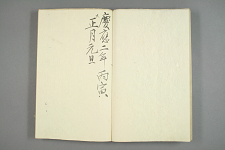 慶應二年丙寅
正月元旦